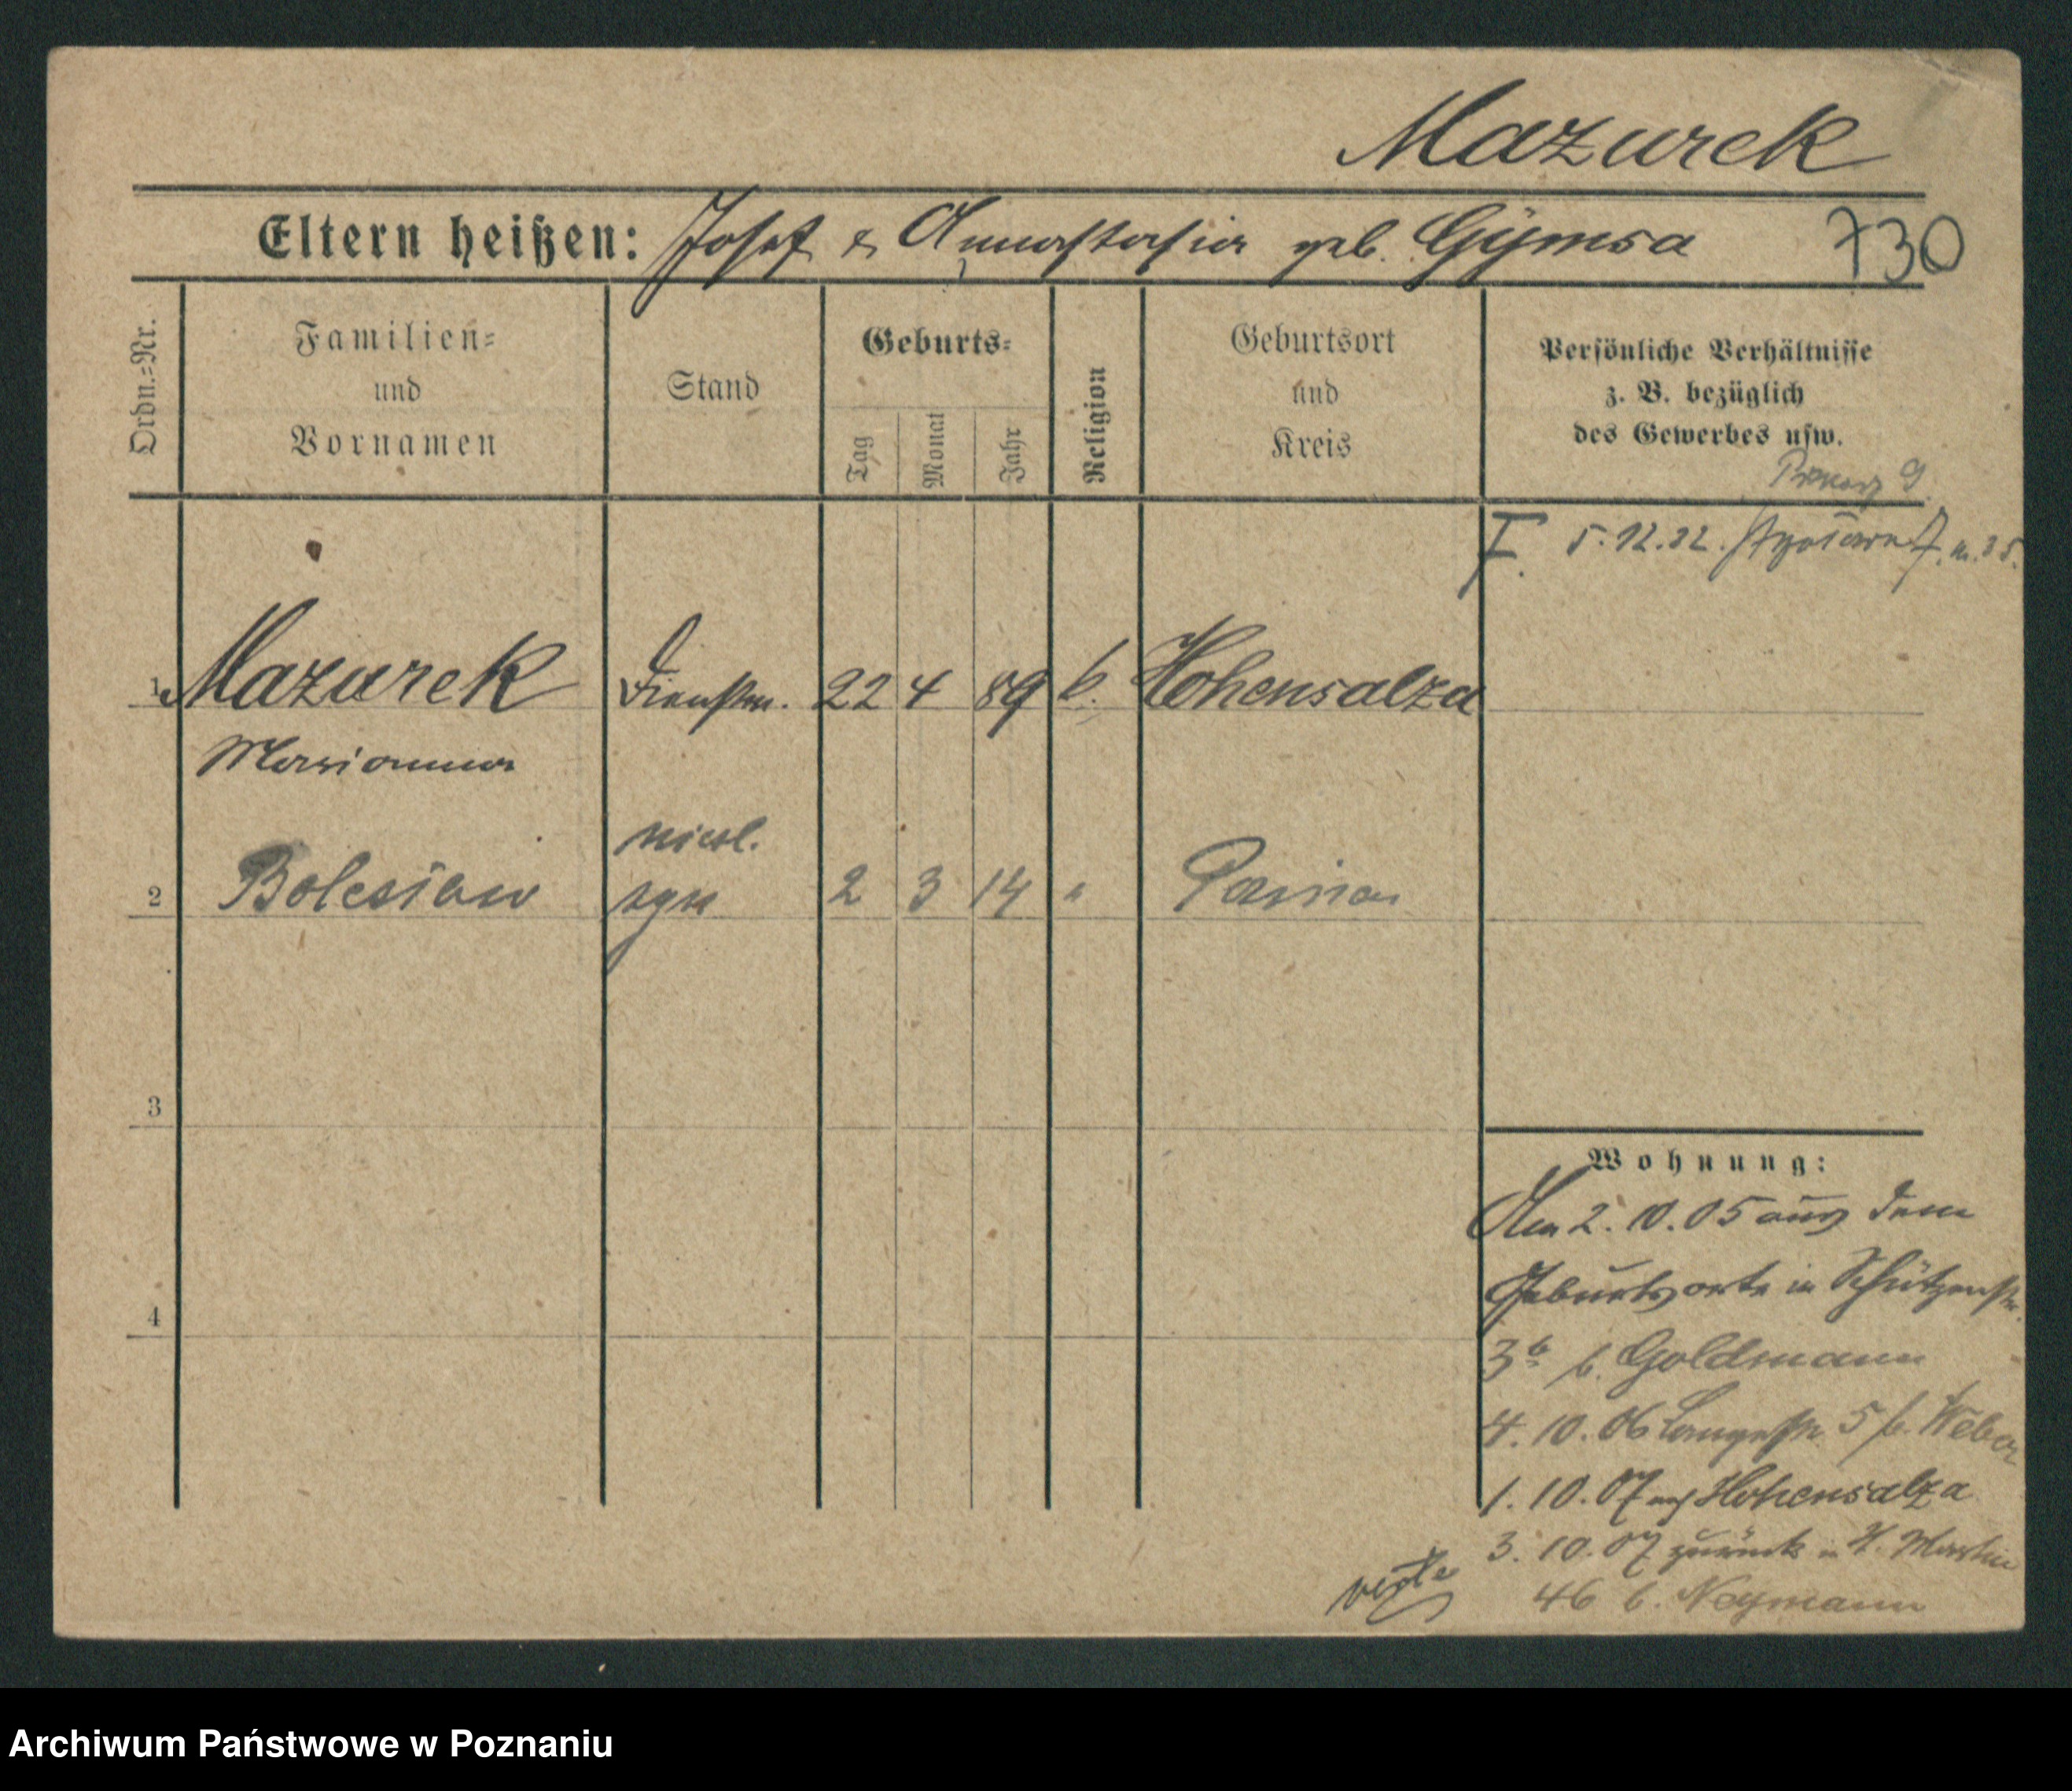 Mazurek
Eltern heißen: Josef & Annastasia geb. Gÿmsa 730
Ordn.=Nr.
Familien=
und
Vornamen
Stand
Geburts=
Tag
Monat
Jahr
Religion
Geburtsort
und
Kreis
Persönliche Verhältnisse
z. B. bezüglich
des Gewerbes usw.
I. 5.12.32.
1 Mazurek Dienstm. 22 4 89 k. Hohensalza
Marianna
2 Boleslaw syn 2 3 14 "
3
4
Wohnung:
Am 2. 10. 05 aus dem
Geburtsorte in Schützenstr.
3b b. Goldmann
4. 10. 06 Langestr. 5 b. Weber
1. 10. 07 nach Hohensalza
3. 10. 07 zurück in St. Martin
46 b. Neymann
verte
Archiwum Państwowe w Poznaniu